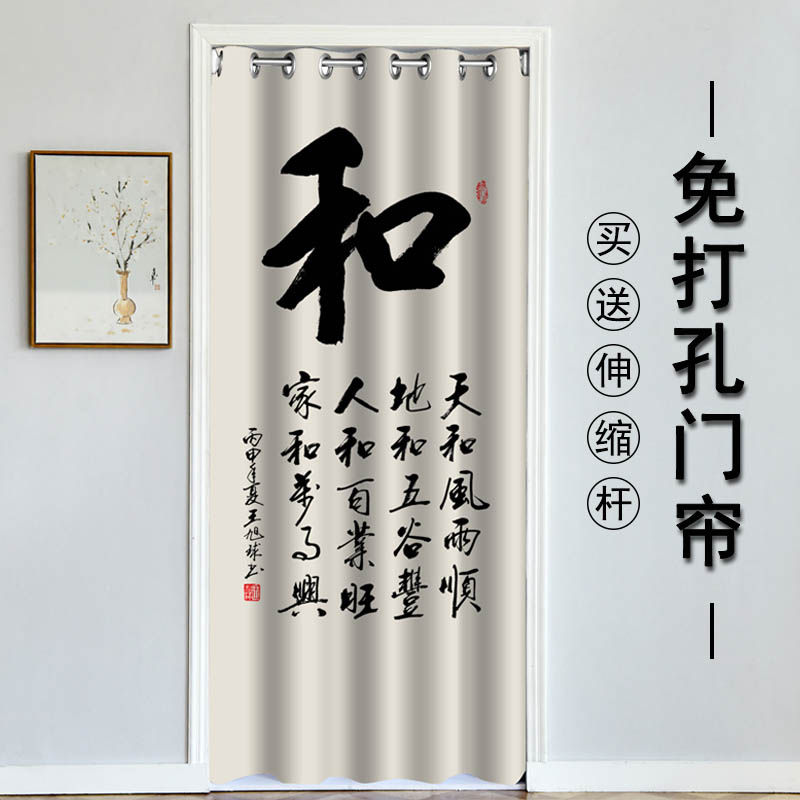 免打孔门帘
买送伸缩杆
和
天和風雨順
地和五谷豐
人和百業旺
家和萬事興
丙申年夏王旭球书